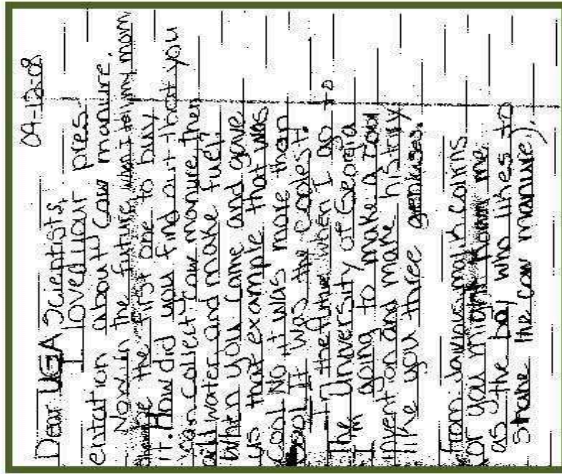 09-12-08
Dear UGA Scientists,
I loved your pres-
entation about Cow manure.
Now in the future, when I tell my mom
the first one to buy
it. How did you find out that you
can collect cow manure, then
add water and make fuel,
When you came and gave
us that example that was
cool. No it was more than
cool It was the coolest.
In the future when I go to
the University of Georgia
I'm going to make a cow
invention and make history
like you three geniuses.
from, mark cairns
(or you might know me
as the boy who likes to
Shake the cow manure).